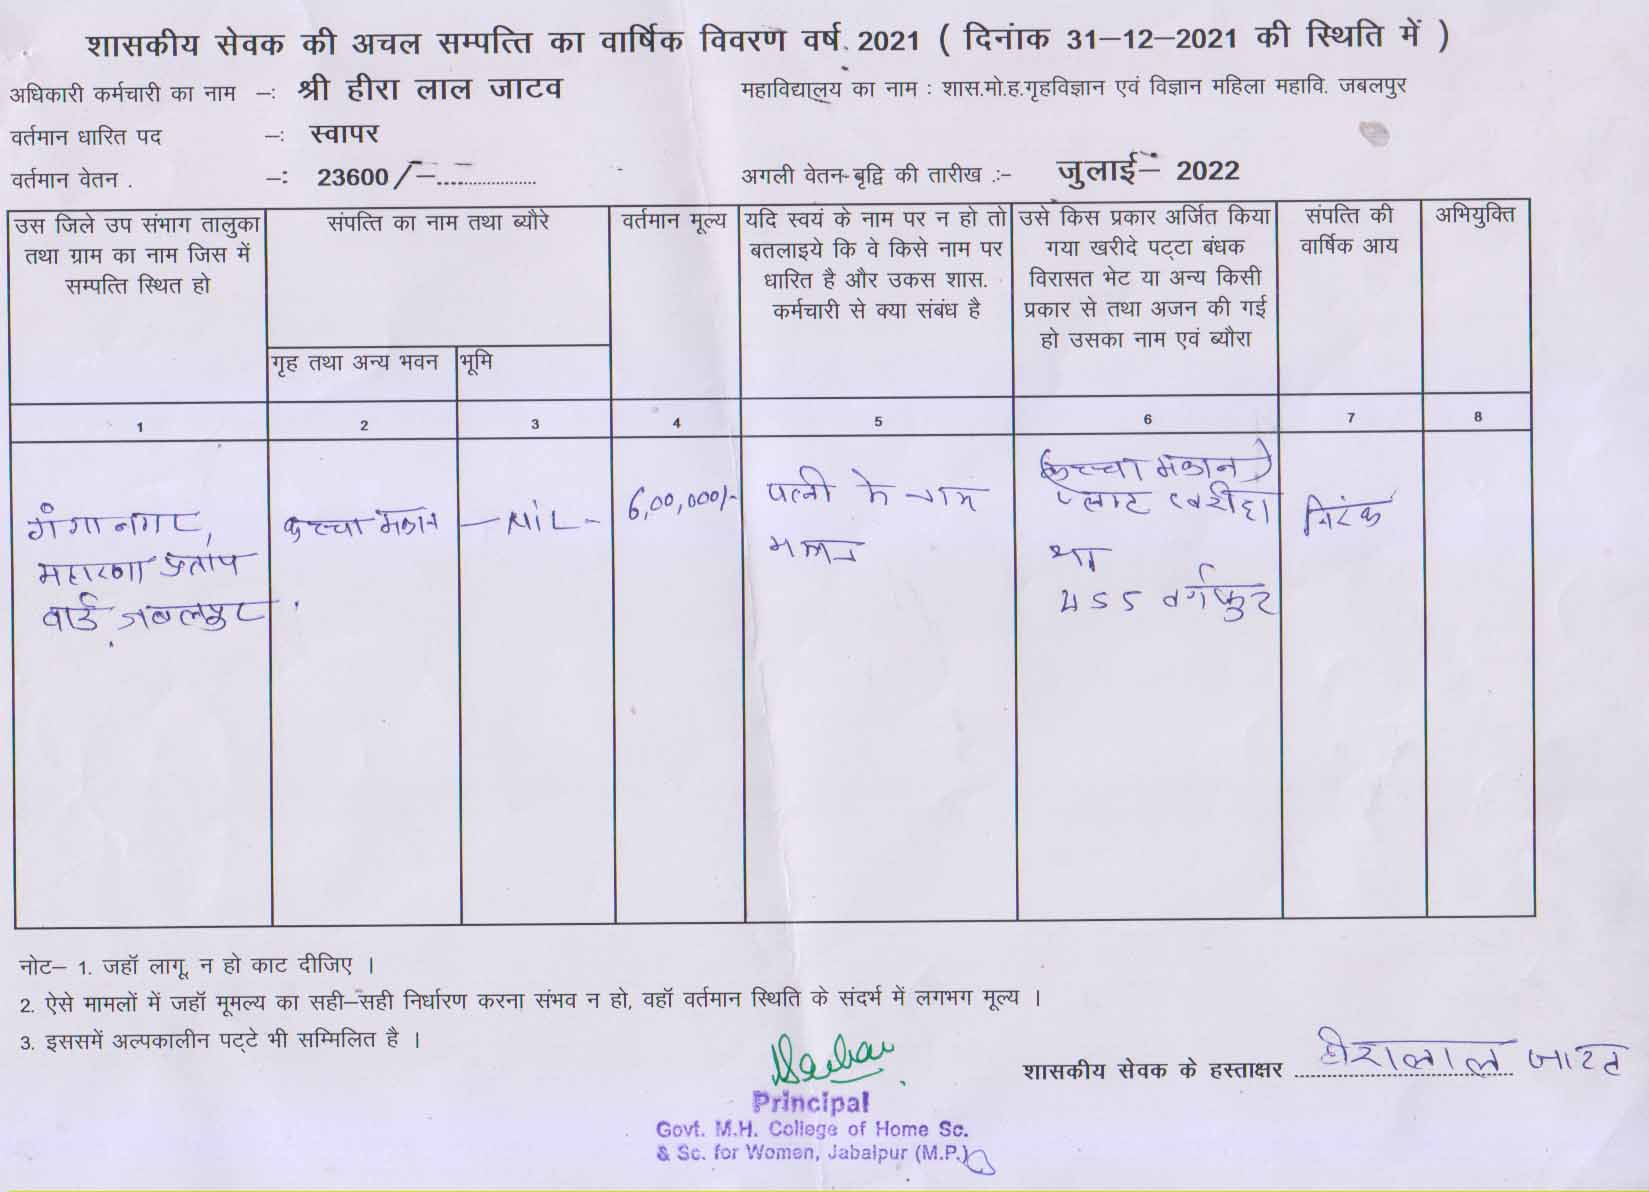 शासकीय सेवक की अचल सम्पत्ति का वार्षिक विवरण वर्ष 2021 ( दिनांक 31–12–2021 की स्थिति में )
अधिकारी कर्मचारी का नाम –: श्री हीरा लाल जाटव
महाविद्यालय का नाम : शास.मो.ह.गृहविज्ञान एवं विज्ञान महिला महावि. जबलपुर
वर्तमान धारित पद –: स्वापर
वर्तमान वेतन . –: 23600/–
अगली वेतन-बृद्वि की तारीख :– जुलाई– 2022
उस जिले उप संभाग तालुका
तथा ग्राम का नाम जिस में
सम्पत्ति स्थित हो
संपत्ति का नाम तथा ब्यौरे
गृह तथा अन्य भवन
भूमि
वर्तमान मूल्य
यदि स्वयं के नाम पर न हो तो
बतलाइये कि वे किसे नाम पर
धारित है और उकस शास.
कर्मचारी से क्या संबंध है
उसे किस प्रकार अर्जित किया
गया खरीदे पट्टा बंधक
विरासत भेट या अन्य किसी
प्रकार से तथा अजन की गई
हो उसका नाम एवं ब्यौरा
संपत्ति की
वार्षिक आय
अभियुक्ति
1 2 3 4 5 6 7 8
गंगानगर,
महाराणा प्रताप
वार्ड जबलपुर.
कच्चा मकान
– NIL –
6,00,000/-
पत्नी के नाम
मकान
(कच्चा मकान)
प्लाट खरीदा
था
455 वर्गफुट
निरंक
नोट– 1. जहॉ लागू न हो काट दीजिए ।
2. ऐसे मामलों में जहॉ मूमल्य का सही–सही निर्धारण करना संभव न हो, वहॉ वर्तमान स्थिति के संदर्भ में लगभग मूल्य ।
3. इससमें अल्पकालीन पट्टे भी सम्मिलित है ।
शासकीय सेवक के हस्ताक्षर हीरालाल जाटव
Principal
Govt. M.H. College of Home Sc.
& Sc. for Women, Jabalpur (M.P.)